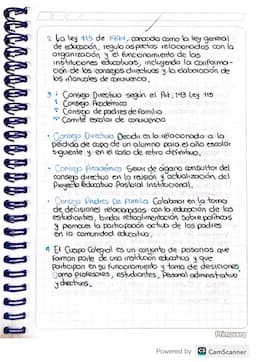 2 La ley 115 de 1994, conocida como la ley general
de educación, regula aspectos relacionados con la
organización y el funcionamiento de las
instituciones educativas, incluyendo la conforma-
ción de los consejos directivos y la elaboración de
los manuales de convivencia.
3 Consejo Directivo según el Art. 143 ley 115
Consejo Académico
Consejo de padres de familia
Comite escolar de convivencia
• Consejo Directivo Decidir en lo relacionado a la
pérdida de cupo de un alumno para el año escolar
siguiente y en el caso de retiro definitivo.
• Consejo Académico Servir de órgano consultor del
consejo directivo en la revisión y actualización del
Proyecto Educativo Pastoral Institucional.
• Consejo Padres De Familia Colaborar en la toma
de decisiones relacionadas con la educación de los
estudiantes, brindar retroalimentación sobre políticas
y promover la participación activa de los padres
en la comunidad educativa.
4 El Cuerpo Colegial es un conjunto de personas que
forman parte de una institución educativa y que
participan en su funcionamiento y toma de desiciones,
Como profesores, estudiantes, Personal administrativo
y directivos.
Primavera
Powered by CS CamScanner